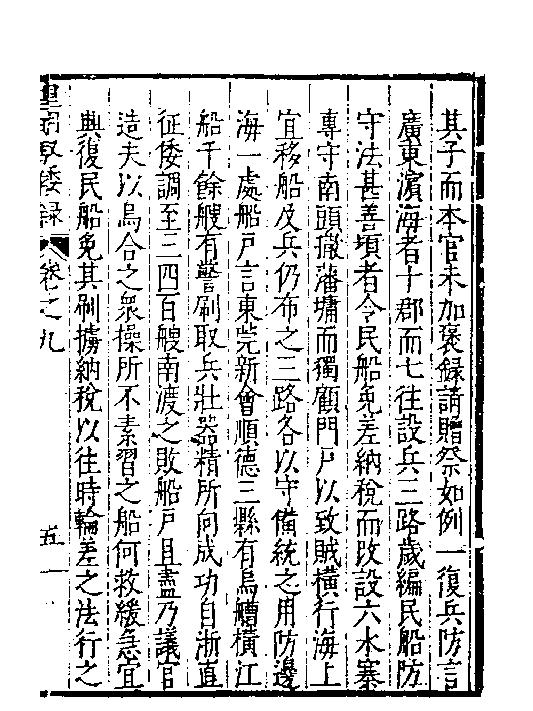 其子而本官未加褒錄請贈祭如例一復兵防言
廣東濵海者十郡而七往設兵三路歲編民船防
守法甚善頃者令民船免差納稅而改設六水寨
專守南頭撤藩墉而獨顧門戶以致賊橫行海上
宜移船及兵仍布之三路各以守備統之用防邊
海一處船戶言東莞新會順德三縣有烏艚橫江
船千餘艘有警刷取兵壯器精所向成功自浙直
征倭調至三四百艘南渡之敗船戶且盡乃議官
造夫以烏合之衆操所不素習之船何救緩急宜
與復民船免其刷擄納稅以往時輪差之法行之
皇明馭倭錄 卷之九 五一